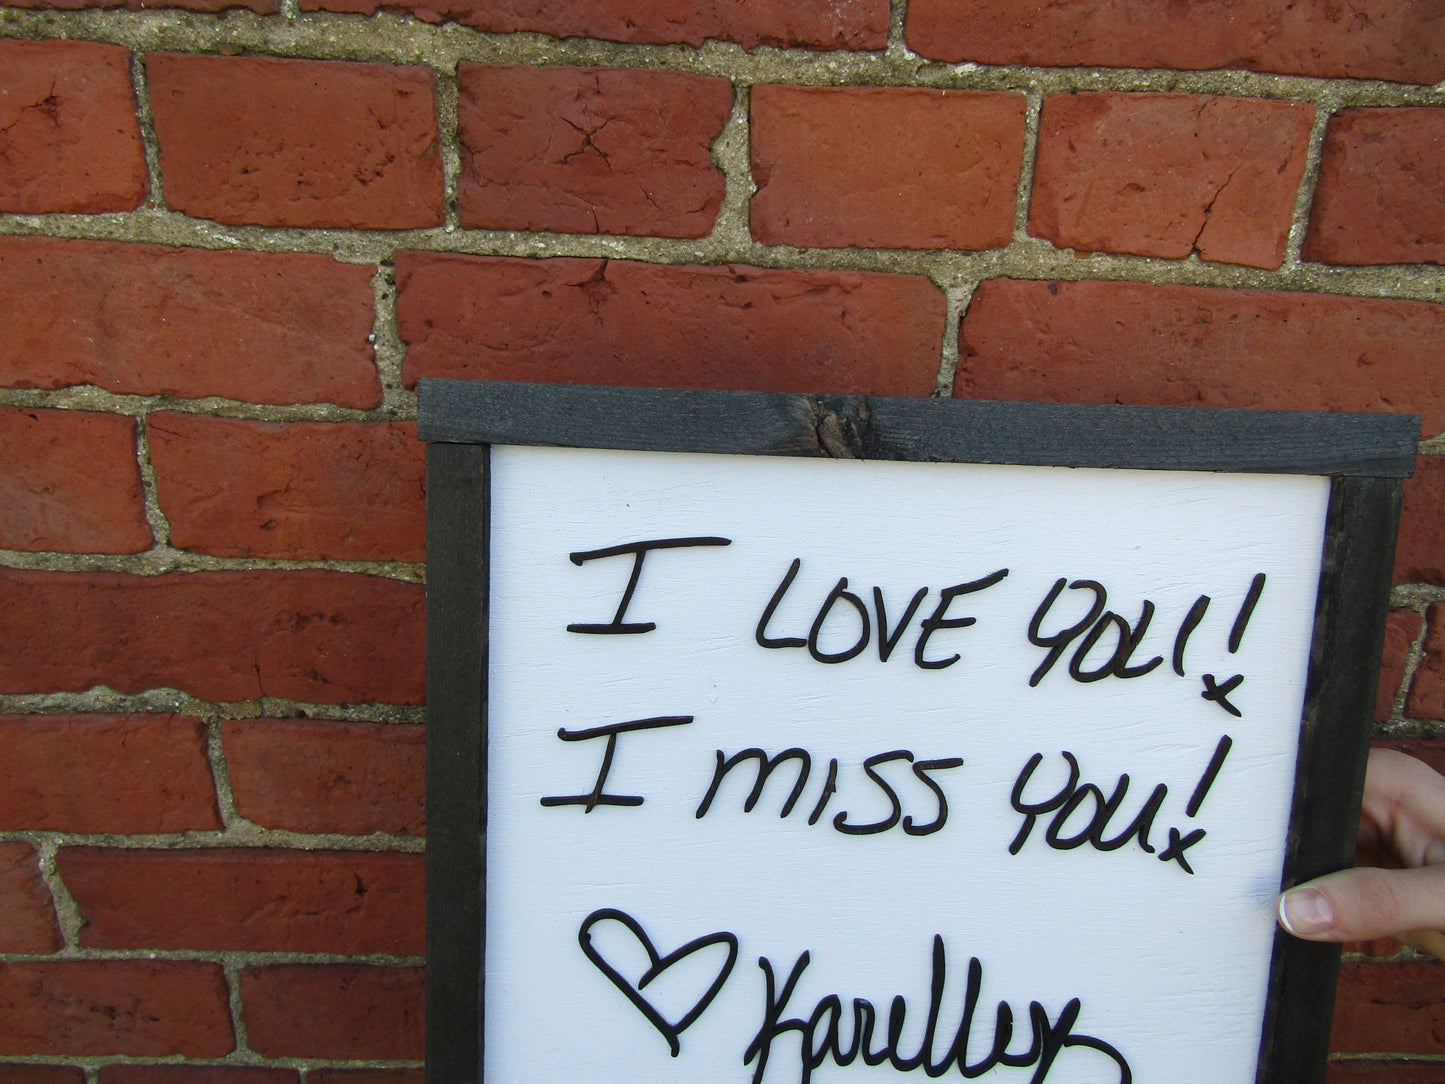 I LOVE YOU!
I MISS YOU!